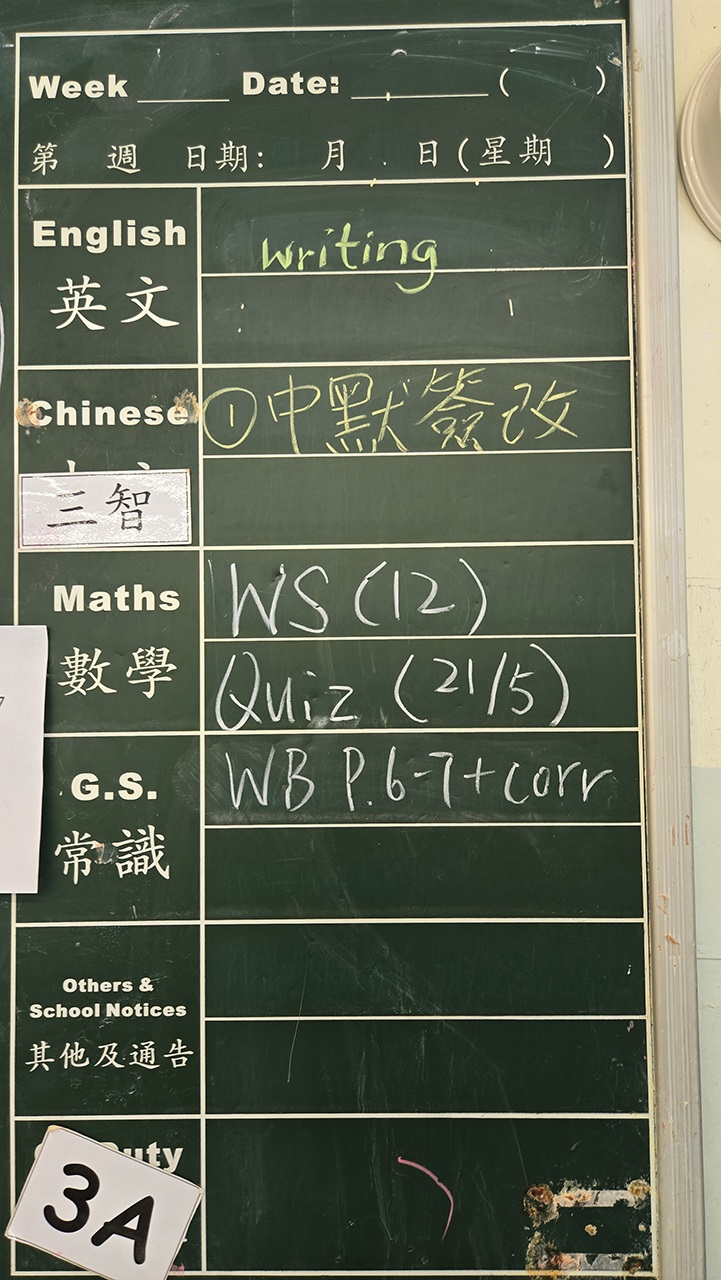 Week ____ Date: ______ ( )
第 週 日期: 月 日(星期 )
English
writing
英文
Chinese
①中默簽改
三智
Maths
WS (12)
數學
Quiz (21/5)
G.S.
WB P.6-7+corr
常識
Others &
School Notices
其他及通告
uty
3A